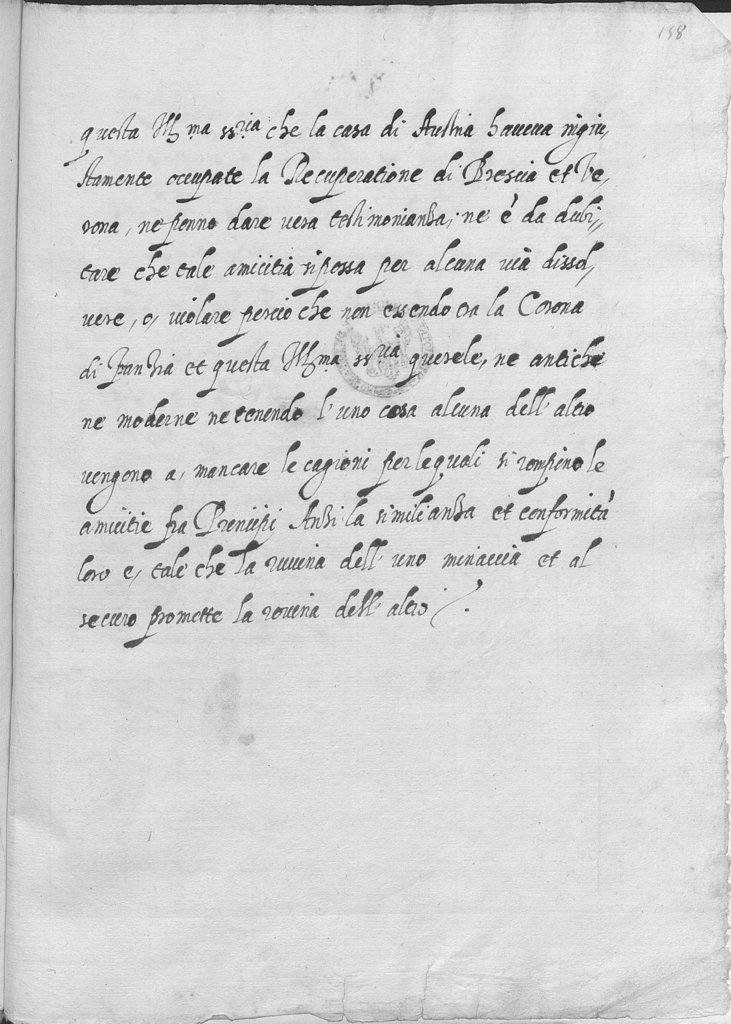 158
questa Ill.ma ss.ria che la casa di Austria haveva ingiu,,
stamente occupate la Recuperatione di Brescia et Ve,,
rona, ne penno dare vera testimonianza, ne è da dubi,,
tare che tale amicitia si possa per alcuna via dissol,,
vere, o, violare percio che non essendo tra la Corona
di franzia et questa Ill.ma ss.ria querele, ne antiche
ne moderne ne tenendo l'uno cosa alcuna dell'altro
vengono a, mancare le cagioni per le quali si rompino le
amicitie fra Prencipi Anzi la similianza et conformità
loro e, tale che la ruvina dell'uno minaccia et al
securo promette la rovina dell'altro /.